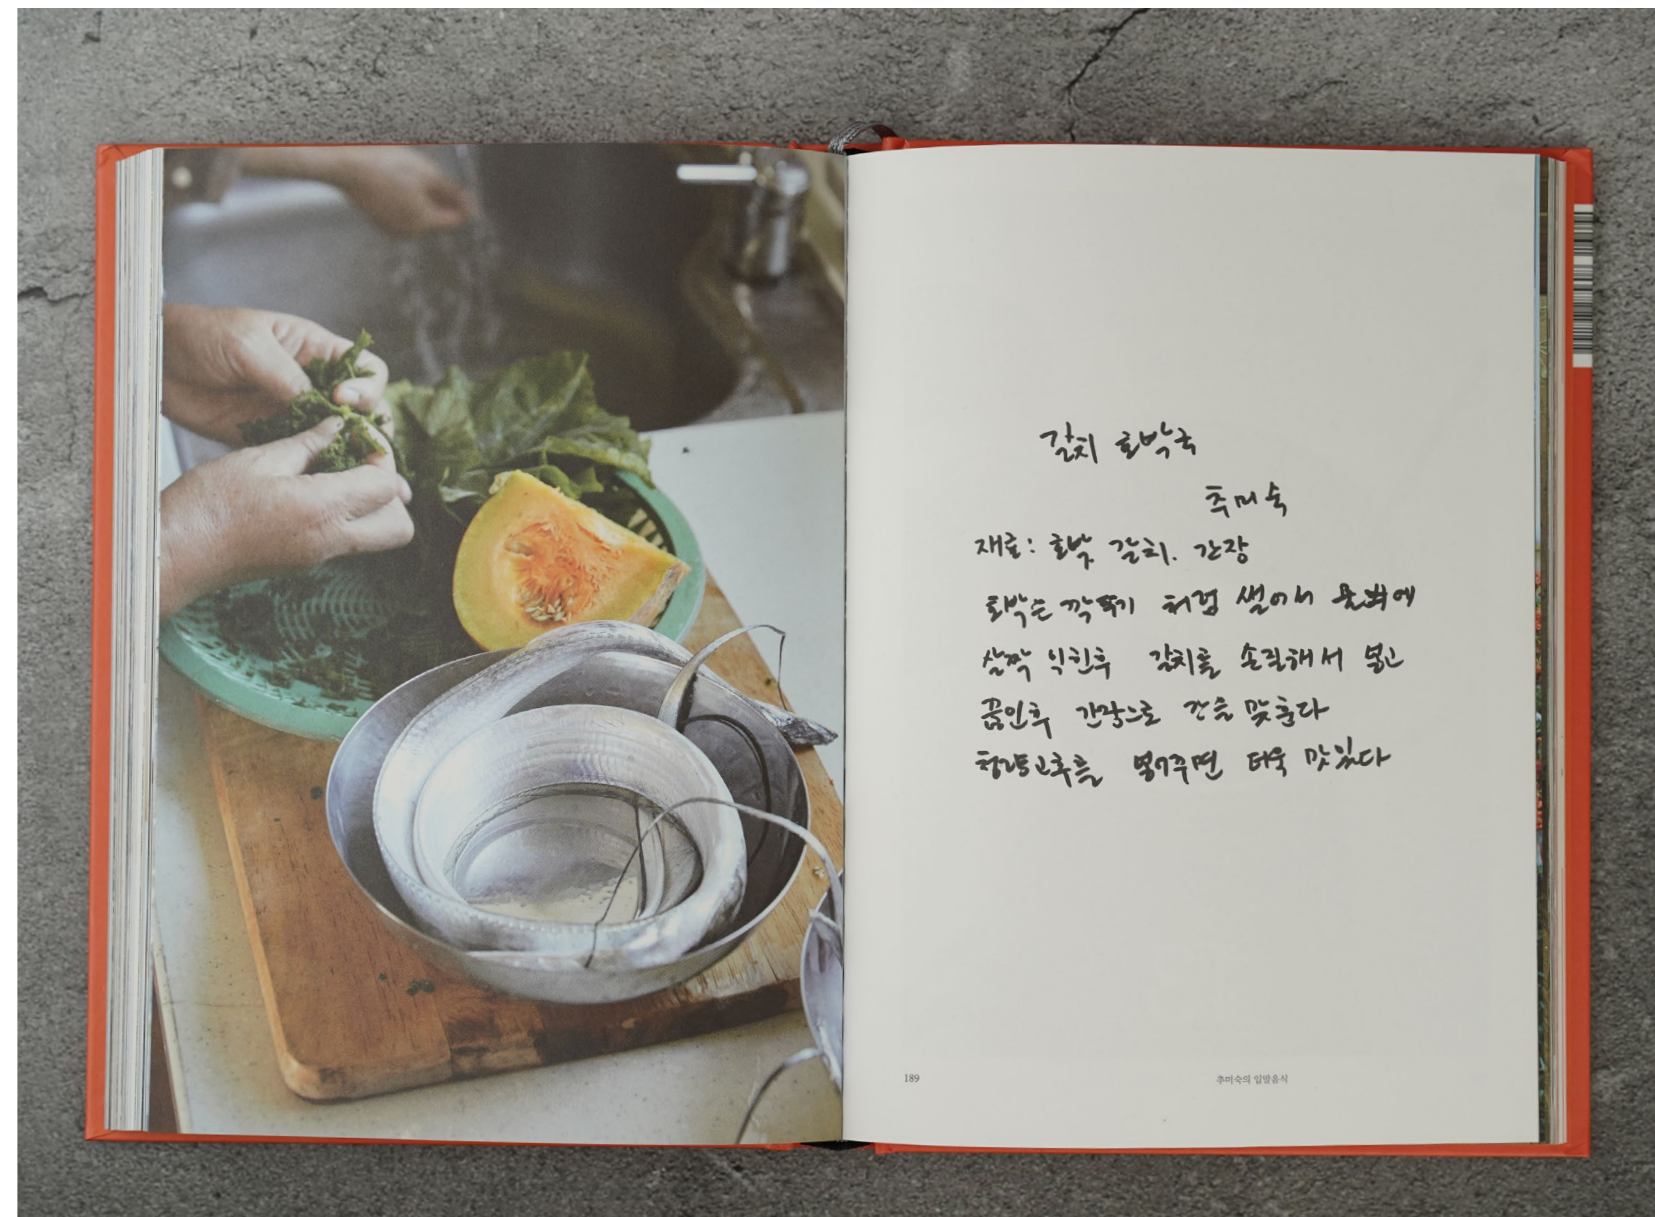 갈치 호박국
추미숙
재료: 호박, 갈치, 간장
호박은 깍뚝기 처럼 썰어서 웃뷔에
살짝 익힌후 갈치를 손질해서 넣고
끓인후 간장으로 간을 맞춘다
청량고추를 넣어주면 더욱 맛있다
189
추미숙의 입말음식